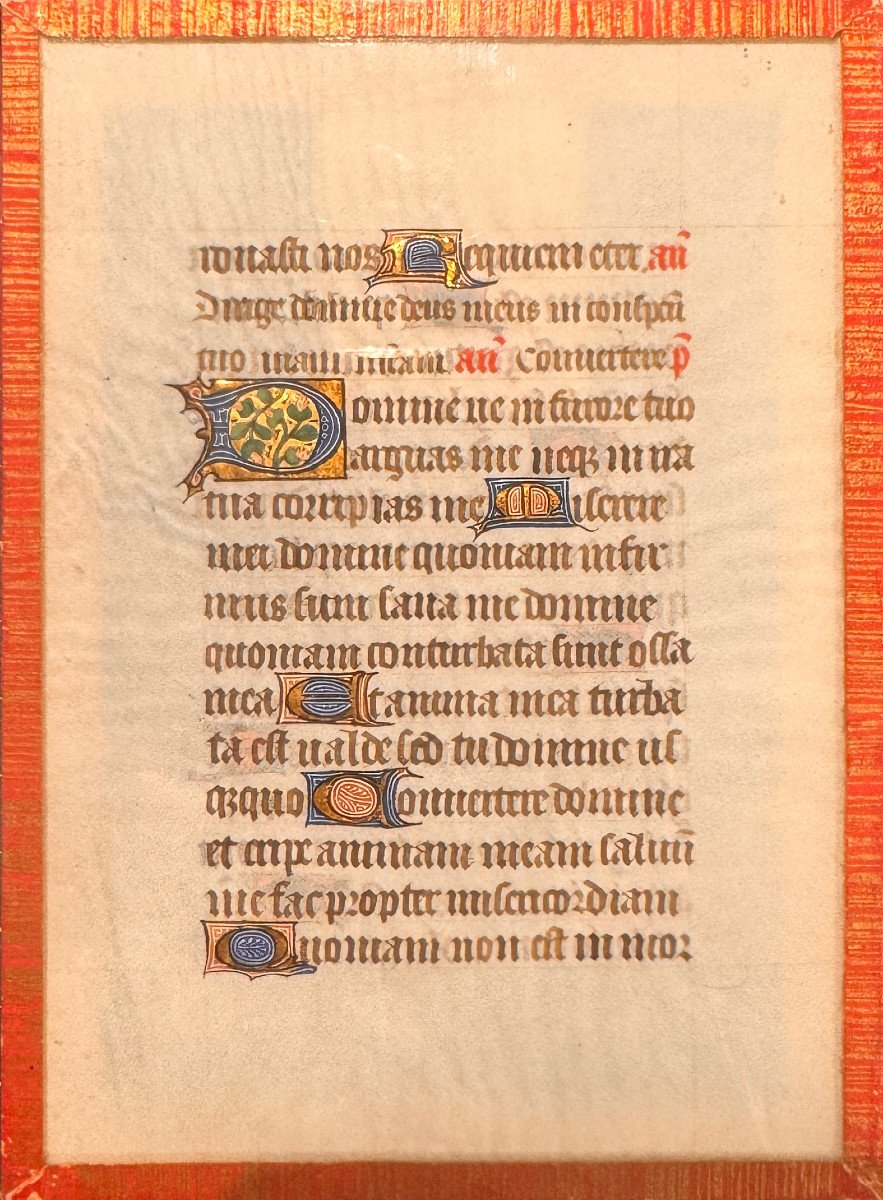 ronasti nos Requiem eter. añ
Dirige domine deus meus in conspectu
tuo uiam meam añ Conuertere p̄
Domine ne in furore tuo
arguas me neqꝫ in ira
tua corripias me Miserere
mei domine quoniam infir
mus sum sana me domine
quoniam conturbata sunt ossa
mea Et anima mea turba
ta est ualde sed tu domine us
qꝫquo Conuertere domine
et eripe animam meam saluū
me fac propter misericordiam
Quoniam non est in mor